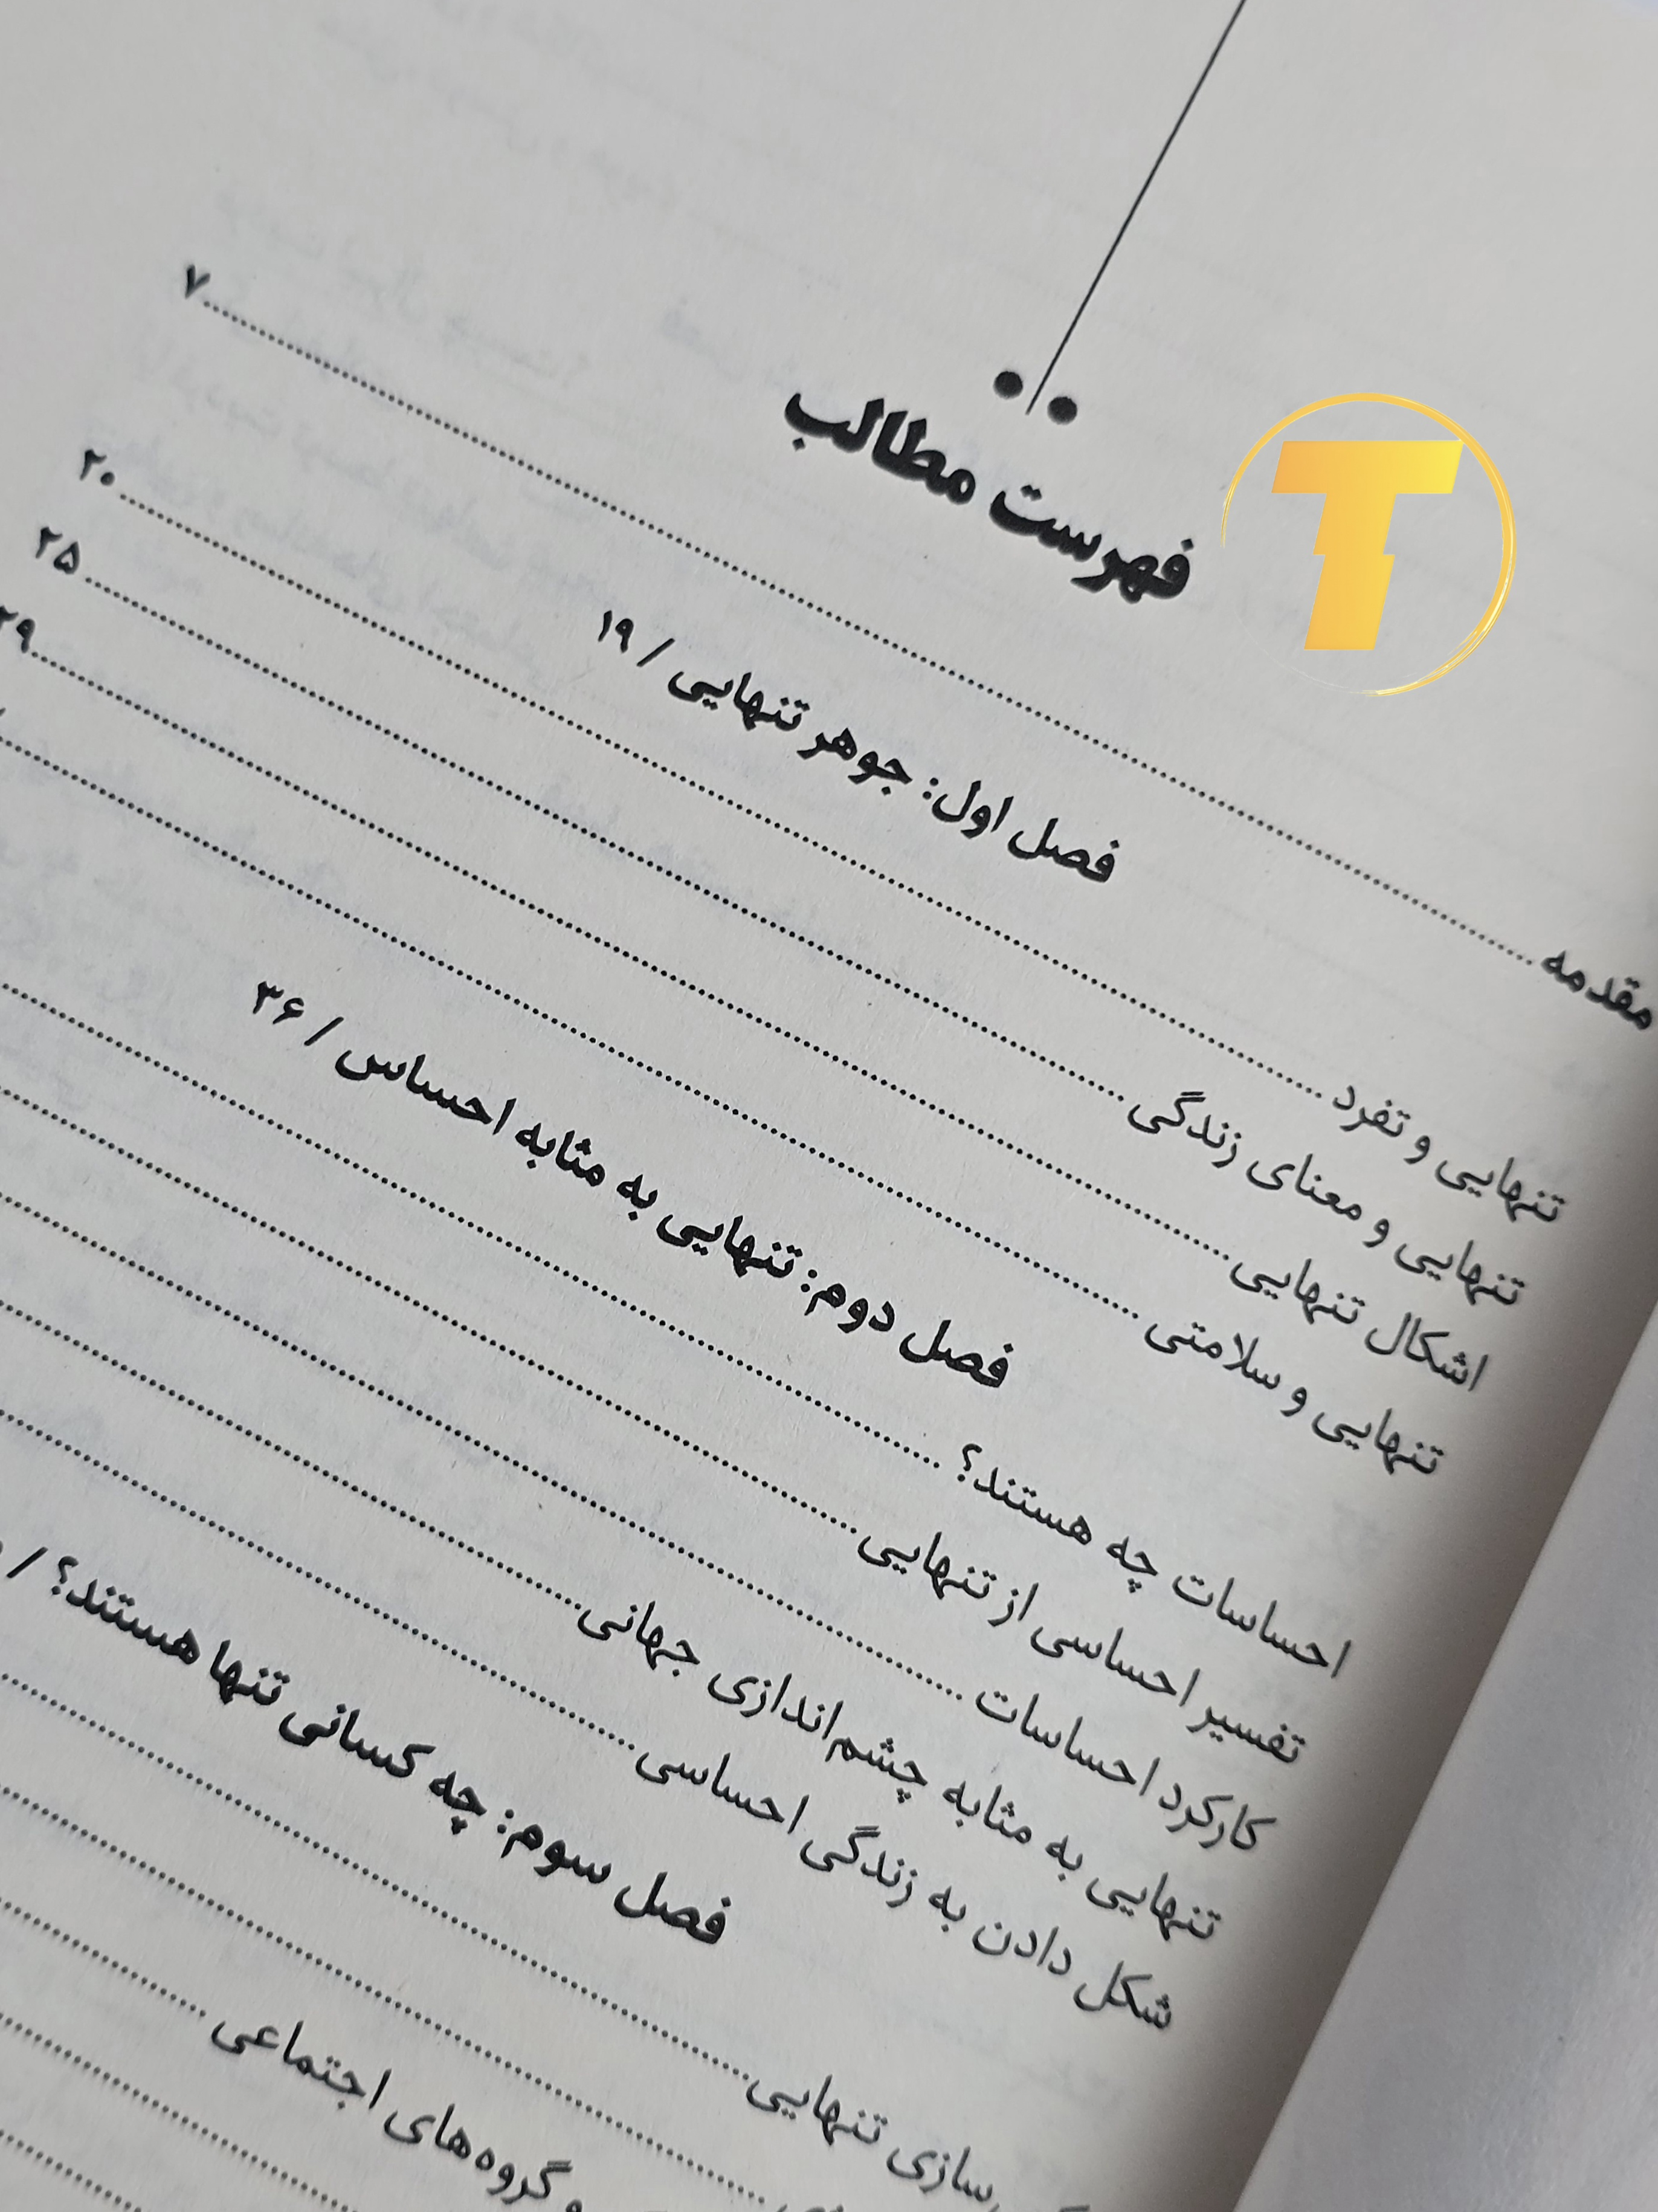 فهرست مطالب
مقدمه ........ ۷
فصل اول: جوهر تنهایی / ۱۹
تنهایی و تفرد ........ ۲۰
تنهایی و معنای زندگی ........ ۲۵
اشکال تنهایی ........ ۲۹
تنهایی و سلامتی ........
فصل دوم: تنهایی به مثابه احساس / ۳۶
احساسات چه هستند؟ ........
تفسیر احساسی از تنهایی ........
کارکرد احساسات ........
تنهایی به مثابه چشم‌اندازی جهانی ........
شکل دادن به زندگی احساسی ........
فصل سوم: چه کسانی تنها هستند؟ /
سازی تنهایی ........
و گروه‌های اجتماعی ........
T